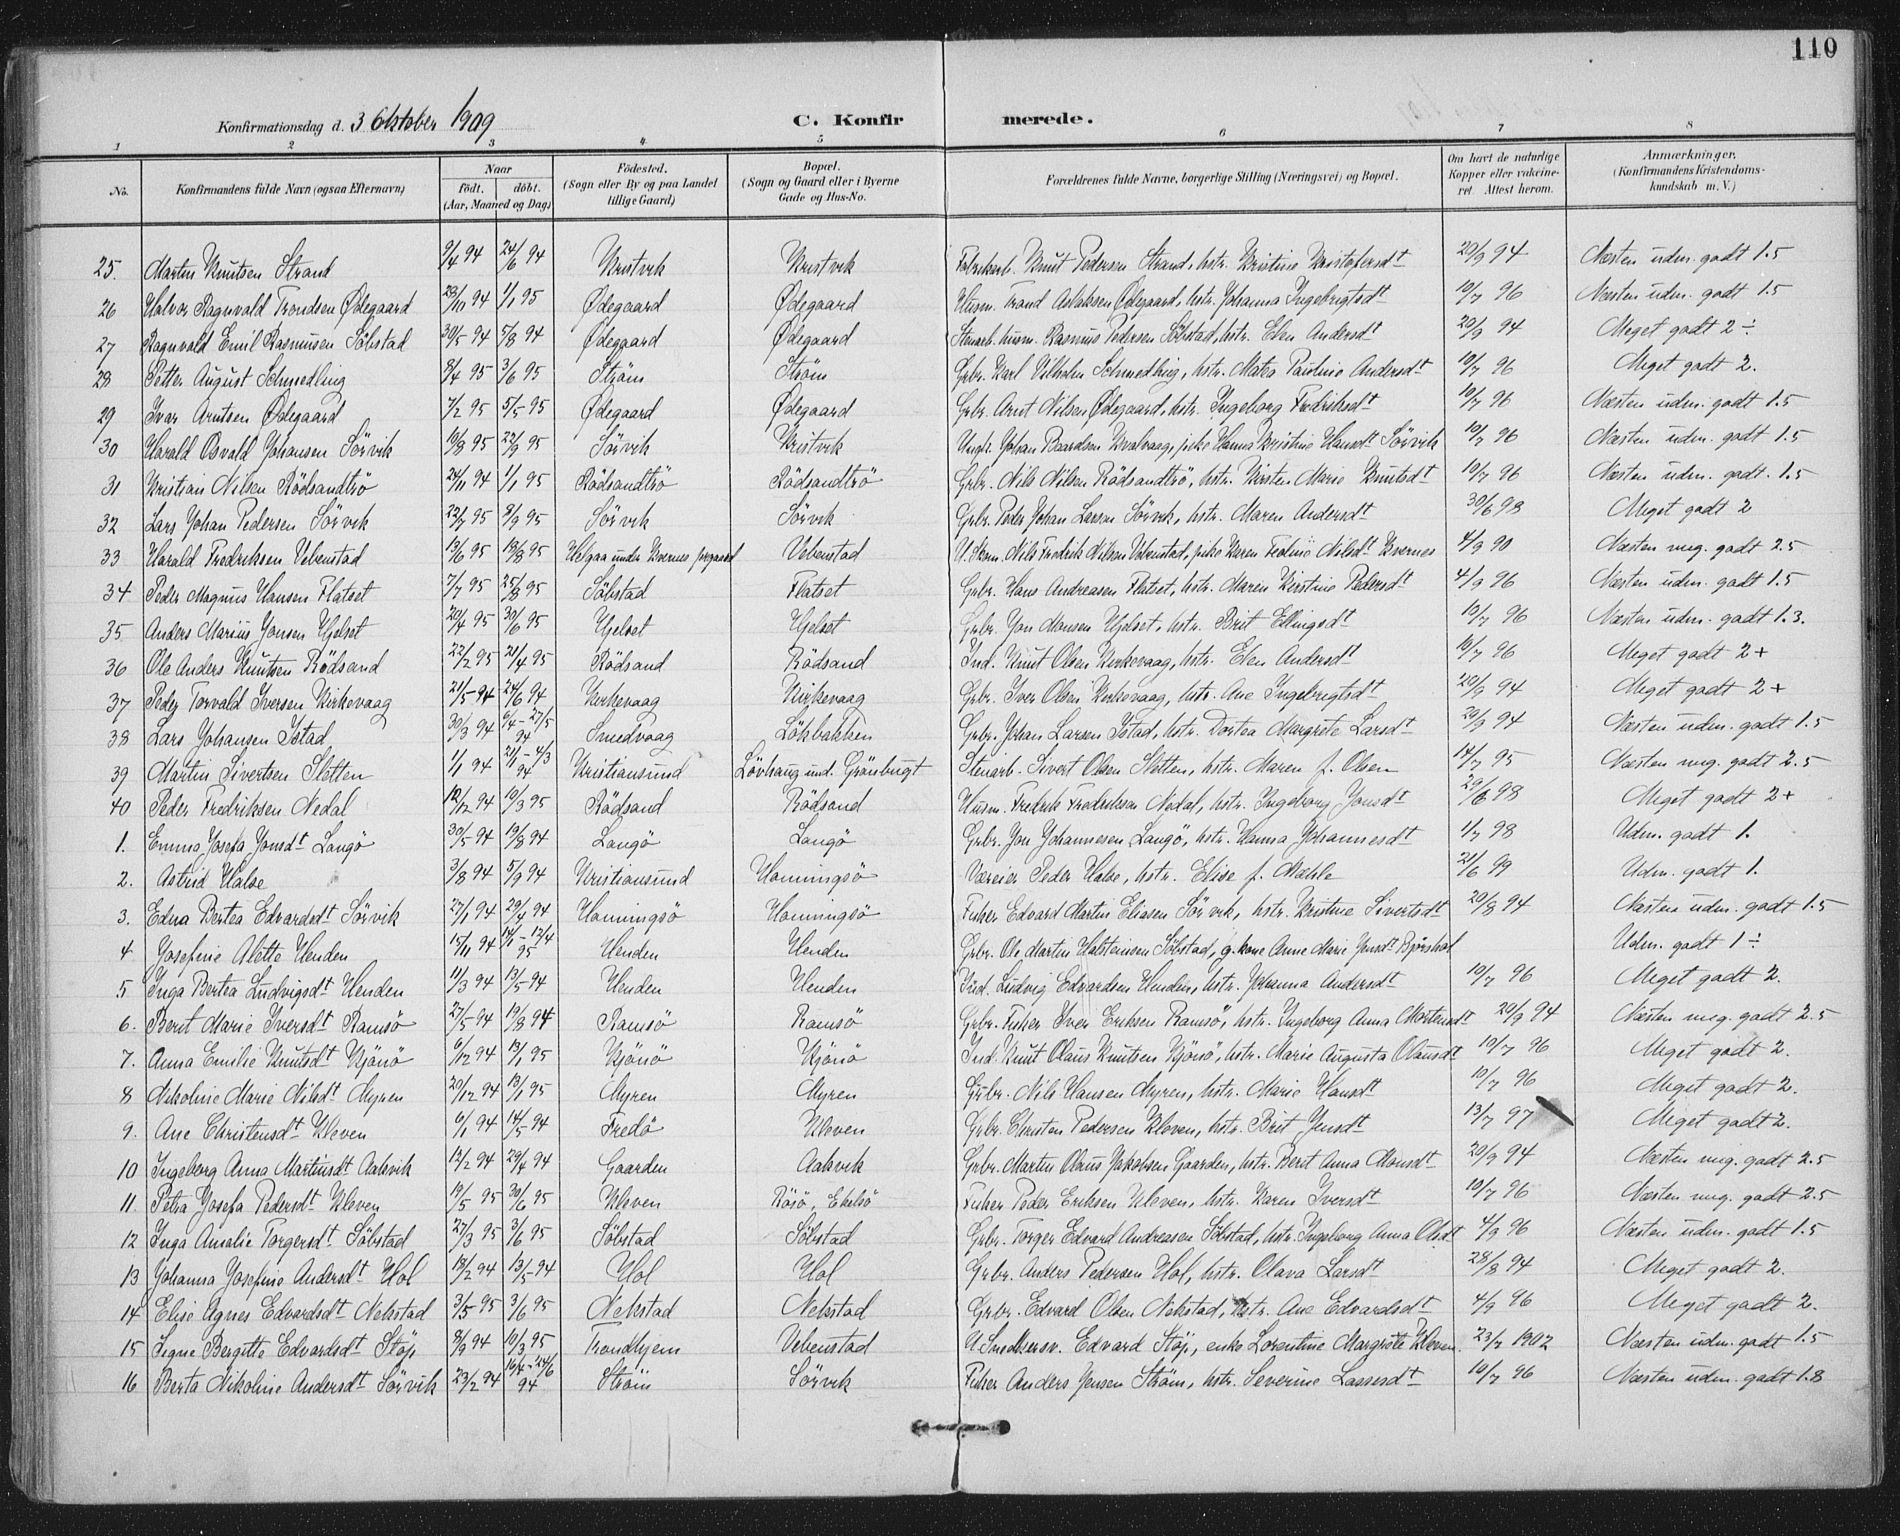 110
Konfirmationsdag d. 3 Oktober 1909 C. Konfirmerede.
1 2 3 4 5 6 7 8
No. Konfirmandens fulde Navn (ogsaa Efternavn) Naar födt. döbt. (Aar, Maaned og Dag) Födested. (Sogn eller By og paa Landet tillige Gaard) Bopæl. (Sogn og Gaard eller i Byerne Gade og Hus-No. Forældrenes fulde Navne, borgerlige Stilling (Næringsvei) og Bopæl. Om havt de naturlige Kopper eller vakcineret Attest herom. Anmærkninger. (Konfirmandens Kristendomskundskab m. V.)
25. Martin Knutsen Strand 9/4 94 24/6 94 Kristvik Kristvik Fabrikarb. Knut Pedersen Strand, hstr. Kristine Kristofersdt 20/9 94 Næsten udm. godt 1.5
26 Halvor Ragnvald Trondsen Ødegaard 28/10 94 1/1 95 Ødegaard Ødegaard Husm. Trond Aslaksen Ødegaard, hstr. Johanna Ingebrigtsdt 10/7 96 Næsten udm. godt 1.5
27 Ragnvald Emil Rasmusen Söbstad 30/5 94 5/8 94 Ødegaard Ødegaard Stenarb. husm. Rasmus Pedersen Söbstad, hstr. Elen Andersdt 20/9 94 Meget godt 2 ÷
28 Petter August Schmedling 8/4 95 3/6 95 Ström Ström Grbr. Karl Vilhelm Schmedling, hstr. Mates Pauline Andersdt 10/7 96 Meget godt 2.
29 Ivar Arntsen Ødegaard 7/2 95 5/5 95 Ødegaard Ødegaard Grbr. Arnt Nilsen Ødegaard, hstr. Ingeborg Fredriksdt 10/7 96 Næsten udm. godt 1.5
30 Harald Osvald Johansen Sörvik 16/8 95 22/9 95 Sörvik Kristvik Ungk. Johan Baardsen Kvalvaag, pike Hanna Kristine Hansdt Sörvik 10/7 96 Næsten udm. godt 1.5
31 Kristian Nilsen Rödsandtrö 24/11 94 1/1 95 Rödsandtrö Rödsandtrö Grbr. Nils Nilsen Rödsandtrö, hstr. Kirsten Marie Knutsdt 10/7 96 Næsten udm. godt. 1.5
32 Lars Johan Pedersen Sörvik 22/7 95 8/9 95 Sörvik Sörvik Grbr. Peder Johan Larsen Sörvik, hstr. Maren Andersdt 30/6 98 Meget godt 2
33 Harald Fredriksen Vebenstad 13/6 95 18/8 95 Helgaa under Kvernes prgaard Vebenstad U. Skom. Nils Fredrik Nilsen Vebenstad, pike Karen Fedine Nilsdt Kvernes 4/9 90 Næsten mg. godt 2.5
34 Peder Magnus Hansen Flatset 7/7 95 25/8 95 Söbstad Flatset Grbr. Hans Andreasen Flatset, hstr. Maren Kirstine Pedersdt 4/9 96 Næsten udm. godt 1.5
35 Anders Marius Jonsen Hjelset 20/4 95 30/6 95 Hjelset Hjelset Grbr. Jon Monsen Hjelset, hstr. Brit Ellingsdt 10/7 96 Næsten udm. godt 1.3.
36 Ole Anders Knutsen Rödsand 22/2 95 21/4 95 Rödsand Rödsand Ind. Knut Olsen Kirkevaag, hstr. Elen Andersdt 10/7 96 Meget godt 2 +
37 Peder Torvald Iversen Kirkevaag 21/5 94 24/6 94 Kirkevaag Kirkevaag Grbr. Iver Olsen Kirkevaag, hstr. Ane Ingebrigtsdt 20/9 94 Meget godt 2 +
38 Lars Johansen Istad 30/3 94 6/4 - 27/5 94 Smedvaag Lökbakken Grbr. Johan Larsen Istad, hstr. Dortea Margrete Larsdt 20/9 94 Næsten udm. godt 1.5
39 Martin Sivertsen Sletten 1/1 94 21/1 - 4/3 94 Kristiansund Lövhaug und. Grönbugt Stenarb. Sivert Olsen Sletten, hstr. Maren f. Olsen 14/7 95 Næsten mg. godt 2.5
40 Peder Fredriksen Nedal 12/12 94 10/3 95 Rödsand Rödsand Husm. Fredrik Fredriksen Nedal, hstr. Ingeborg Jonsdt 29/6 98 Meget godt 2 +
1. Emma Josefa Jonsdt Langö 30/5 94 19/8 94 Langö Langö Grbr. Jon Johannesen Langö, hstr. Hanna Johannesdt 1/7 98 Udm. godt 1.
2. Astrid Halse 3/8 94 5/9 94 Kristiansund Honningsö Væreier Peder Halse, hstr. Elise f. Mæhle 21/6 99 Udm. godt 1.
3. Edna Bertea Edvardsdt Sörvik 27/1 94 29/4 94 Honningsö Honningsö Fisker Edvard Martin Eliasen Sörvik, hstr. Kristine Sivertsdt 20/8 94 Næsten udm. godt 1.5
4 Josefine Alette Henden 15/11 94 14/1 - 12/4 95 Henden Henden Grbr. Ole Martin Halsteinsen Söbstad, g. kone Anne Marie Jensdt Bjørshol Udm. godt 1 ÷
5 Inga Bertea Ludvigsdt Henden 11/3 94 13/5 94 Henden Henden Ind. Ludvig Edvardsen Henden, hstr. Johanna Andersdt 10/7 96 Meget godt 2.
6. Berit Marie Iversdt Ramsö 27/5 94 19/8 94 Ramsö Ramsö Grbr. Fisker Iver Eriksen Ramsö, hstr. Ingeborg Anna Mortensdt 20/9 94 Næsten meg. godt 2.5
7. Anna Emilie Knutsdt Kjönö 6/12 94 13/1 95 Kjönö Kjönö Ind. Knut Olaus Knutsen Kjönö, hstr. Marie Augusta Olausdt 10/7 96 Meget godt 2.
8 Nikoline Marie Nilsdt Myren 20/12 94 13/1 95 Myren Myren Grbr. Nils Hansen Myren, hstr. Marie Hansdt 10/7 96 Meget godt 2.
9. Ane Christensdt Kleven 6/1 94 14/5 94 Fredö Kleven Grbr. Christen Pedersen Kleven, hstr. Brit Jensdt 13/7 97 Meget godt 2.
10 Ingeborg Anna Martinsdt Aakvik 12/2 94 29/4 94 Gaarden Aakvik Grbr. Martin Olaus Jakobsen Gaarden, hstr. Berit Anna Monsdt 20/9 94 Næsten mg. godt 2.5
11. Petra Josefa Pedersdt Kleven 19/5 95 30/6 95 Kleven Rösö, Ekelsö Fisker Peder Eriksen Kleven, hstr. Karen Iversdt 10/7 96 Næsten mg. godt 2.5
12 Inga Amalie Torgersdt Söbstad 27/3 95 3/6 95 Söbstad Söbstad Grbr. Torger Edvard Andreasen Söbstad, hstr. Ingeborg Anna Olsdt 4/9 96 Næsten udm. godt 1.5
13 Johanna Josefine Andersdt Hol 18/2 94 13/5 94 Hol Hol Grbr. Anders Pedersen Hol, hstr. Olava Larsdt 28/8 94 Meget godt 2.
14 Elise Agnes Edvardsdt Nekstad 3/5 95 3/6 95 Nekstad Nekstad Grbr. Edvard Olsen Nekstad, hstr. Ane Edvardsdt 4/9 96 Meget godt 2.
15 Signe Bergitte Edvardsdt Stöp 8/9 94 10/3 95 Trondhjem Vebenstad U. Smedsersv. Edvard Stöp, enke Lorentine Margrete Kleven. 23/7 1902 Næsten udm. godt 1.5
16 Berta Nikoline Andersdt Sörvik 23/2 94 16/4 - 24/6 94 Ström Sörvik Fisker Anders Jensen Ström, hstr. Severine Lassesdt 10/7 96 Næsten udm. godt 1.8